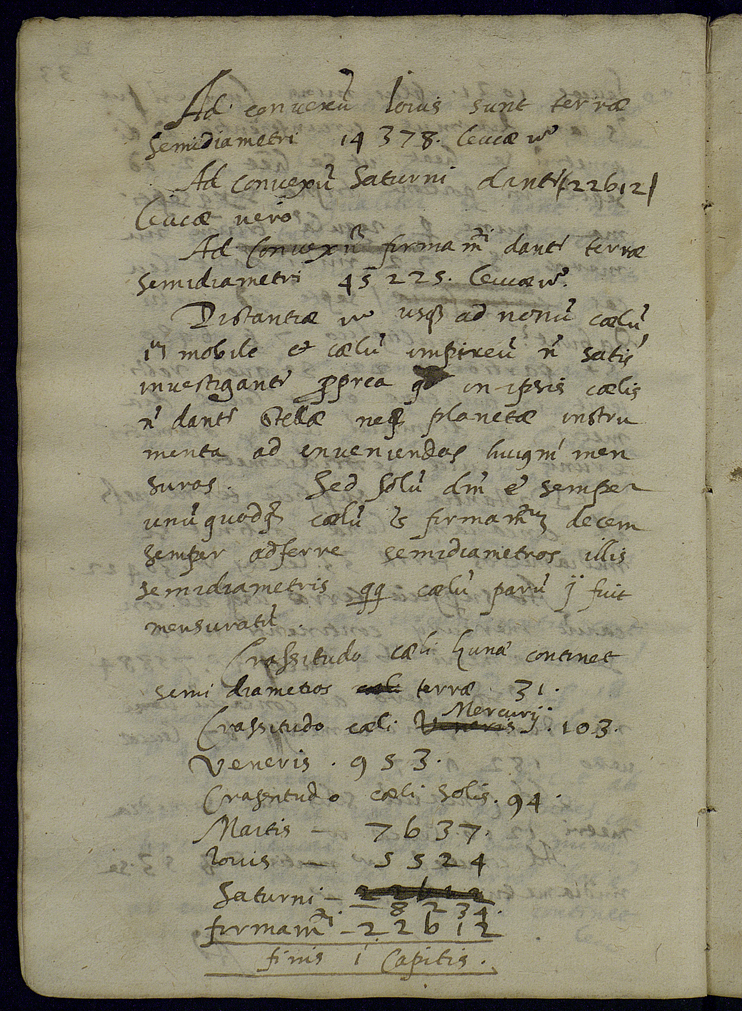 Ad conuexū Iouis sunt terræ
semidiametri 14378. leucæ vº
Ad conuexū Saturni dantʳ (22612)
leucæ vero
Ad conuexū firmamᵗⁱ dantʳ terræ
semidiametri 45225. leucæ vº.
Distantiæ vº usq₃ ad nonū cælū
iᵐ mobile et cælū impireū n̄ satis
inuestigantʳ in ipsis cælis
n̄ dantʳ stellæ neq₃ planetæ instru
menta ad inueniendas huiqm̄i men
suras. Sed solū dm̄ ē semper
unū quodq₃ cælū firmamᵗᵘ decem
semper adferre semidiametros illis
semidiametris cælū parū fuit
mensuratū.
Crassitudo cæli Lunæ continet
semi diametros cæli terræ. 31.
Crassitudo cæli Veneris Mercurij. 103.
Veneris. 953.
Crassitudo cæli Solis. 94.
Martis — 7637.
Iouis — 5524
Saturni — 22612
8234.
firmamᵗⁱ — 22612
finis i Capitis.